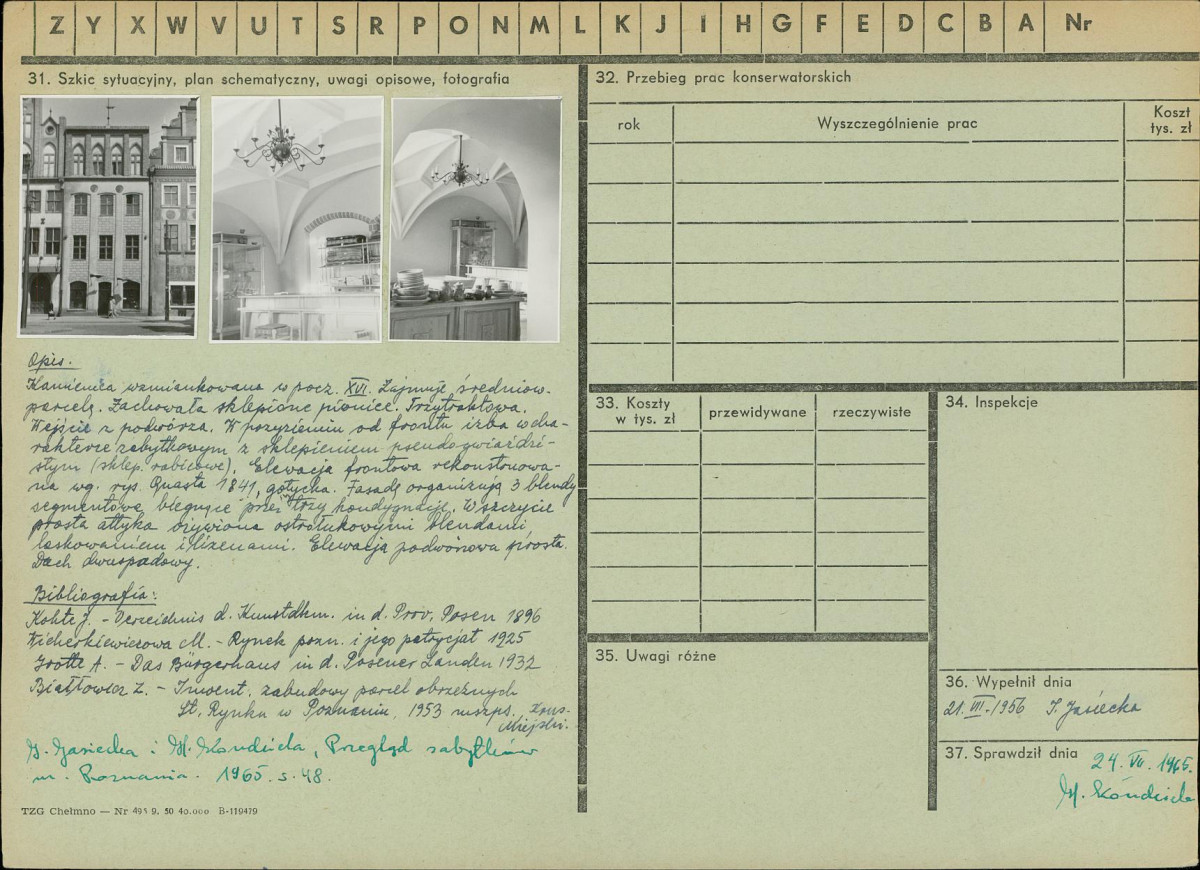 Z Y X W V U T S R P O N M L K J I H G F E D C B A Nr
31. Szkic sytuacyjny, plan schematyczny, uwagi opisowe, fotografia
Opis.
Kamienica wzmiankowana w pocz. XVI. Zajmuje średniow.
parcelę. Zachowała sklepione piwnice. Trzytraktowa.
Wejście z podwórza. W przyziemiu od frontu izba w cha-
rakterze zabytkowym z sklepieniem pseudogwiaździ-
stym (sklep. rabicowe). Elewacja frontowa rekonstruowa-
na wg. rys. Quasta 1841, gotycka. Fasadę organizują 3 blendy
segmentowe biegnące przez trzy kondygnacje. W szczycie
prosta attyka ożywiona ostrołukowymi blendami,
laskowaniem i lizenami. Elewacja podwórzowa prosta.
Dach dwuspadowy.
Bibliografia:
Kohte J. - Verzeichnis d. Kunstdkm. in d. Prov. Posen 1896
Wicherkiewiczowa M. - Rynek pozn. i jego patrycjat 1925
Grotte A. - Das Bürgerhaus in d. Posener Landen 1932
Białłowicz Z. - Inwent. zabudowy parcel obrzeżnych
St. Rynku w Poznaniu, 1953 mszps. Kons.
Miejski.
G. Gasiecka i H. Kondziela, Przegląd zabytków
m. Poznania. 1965. s. 48.
TZG Chełmno — Nr 495 9. 50 40.000 B-119479
32. Przebieg prac konserwatorskich
rok Wyszczególnienie prac Koszt
tys. zł
33. Koszty
w tys. zł przewidywane rzeczywiste
34. Inspekcje
35. Uwagi różne
36. Wypełnił dnia
21. VIII. 1956 I. Jasiecka
37. Sprawdził dnia
24. VII. 1965.
H. Kondziela